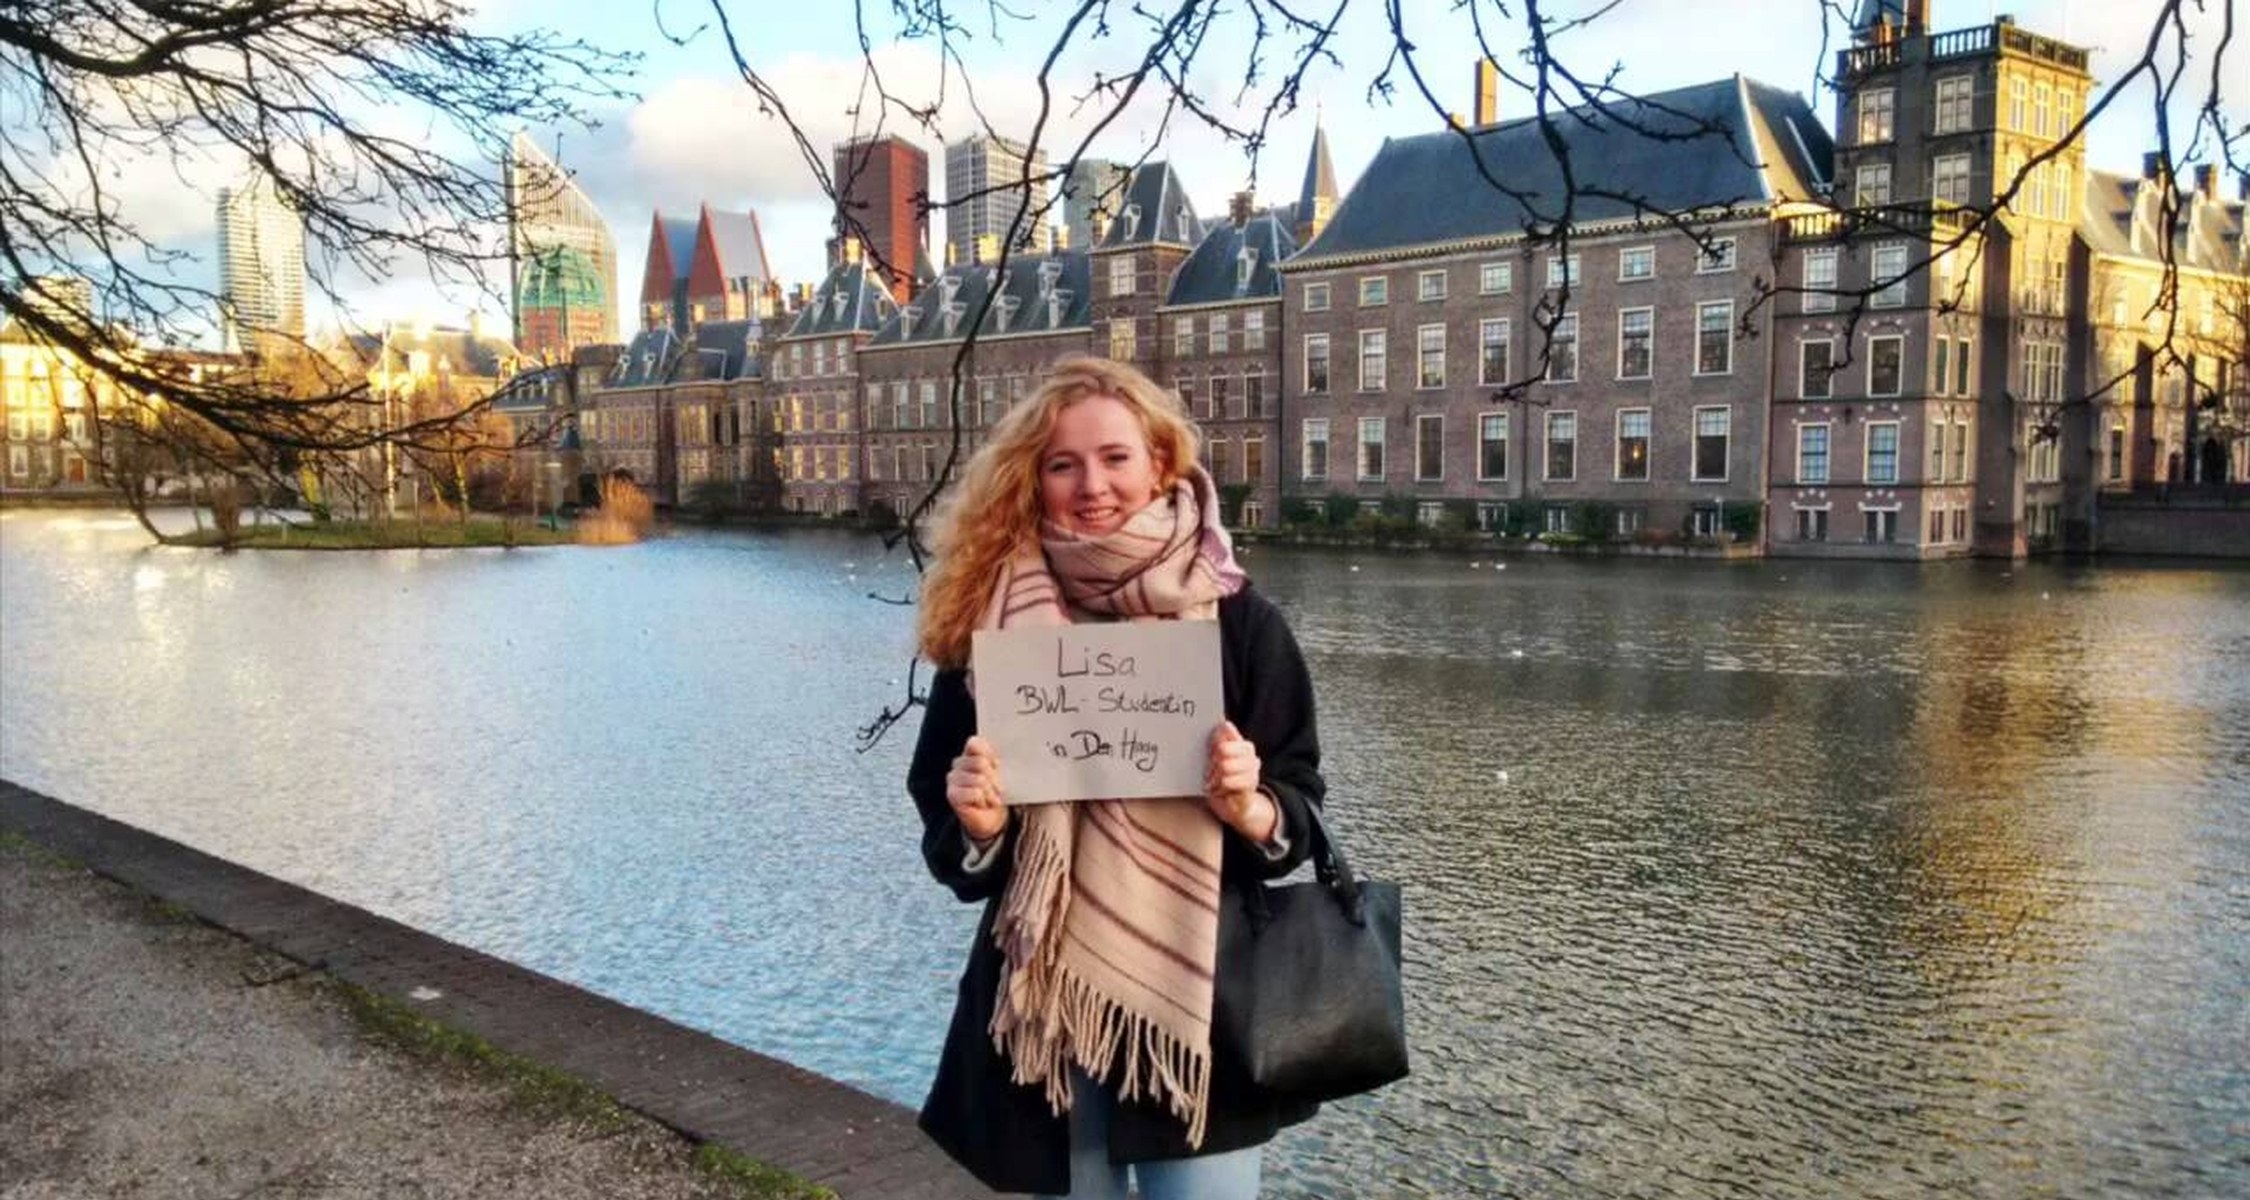 Lisa
BWL-Studentin
in Den Haag